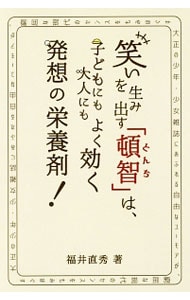 大正の少年・少女雑誌にあふれる自由なユーモアが
笑いを生み出す「頓智」は、
とんち
子どもにも大人にもよく効く
発想の栄養剤!
福井直秀 著